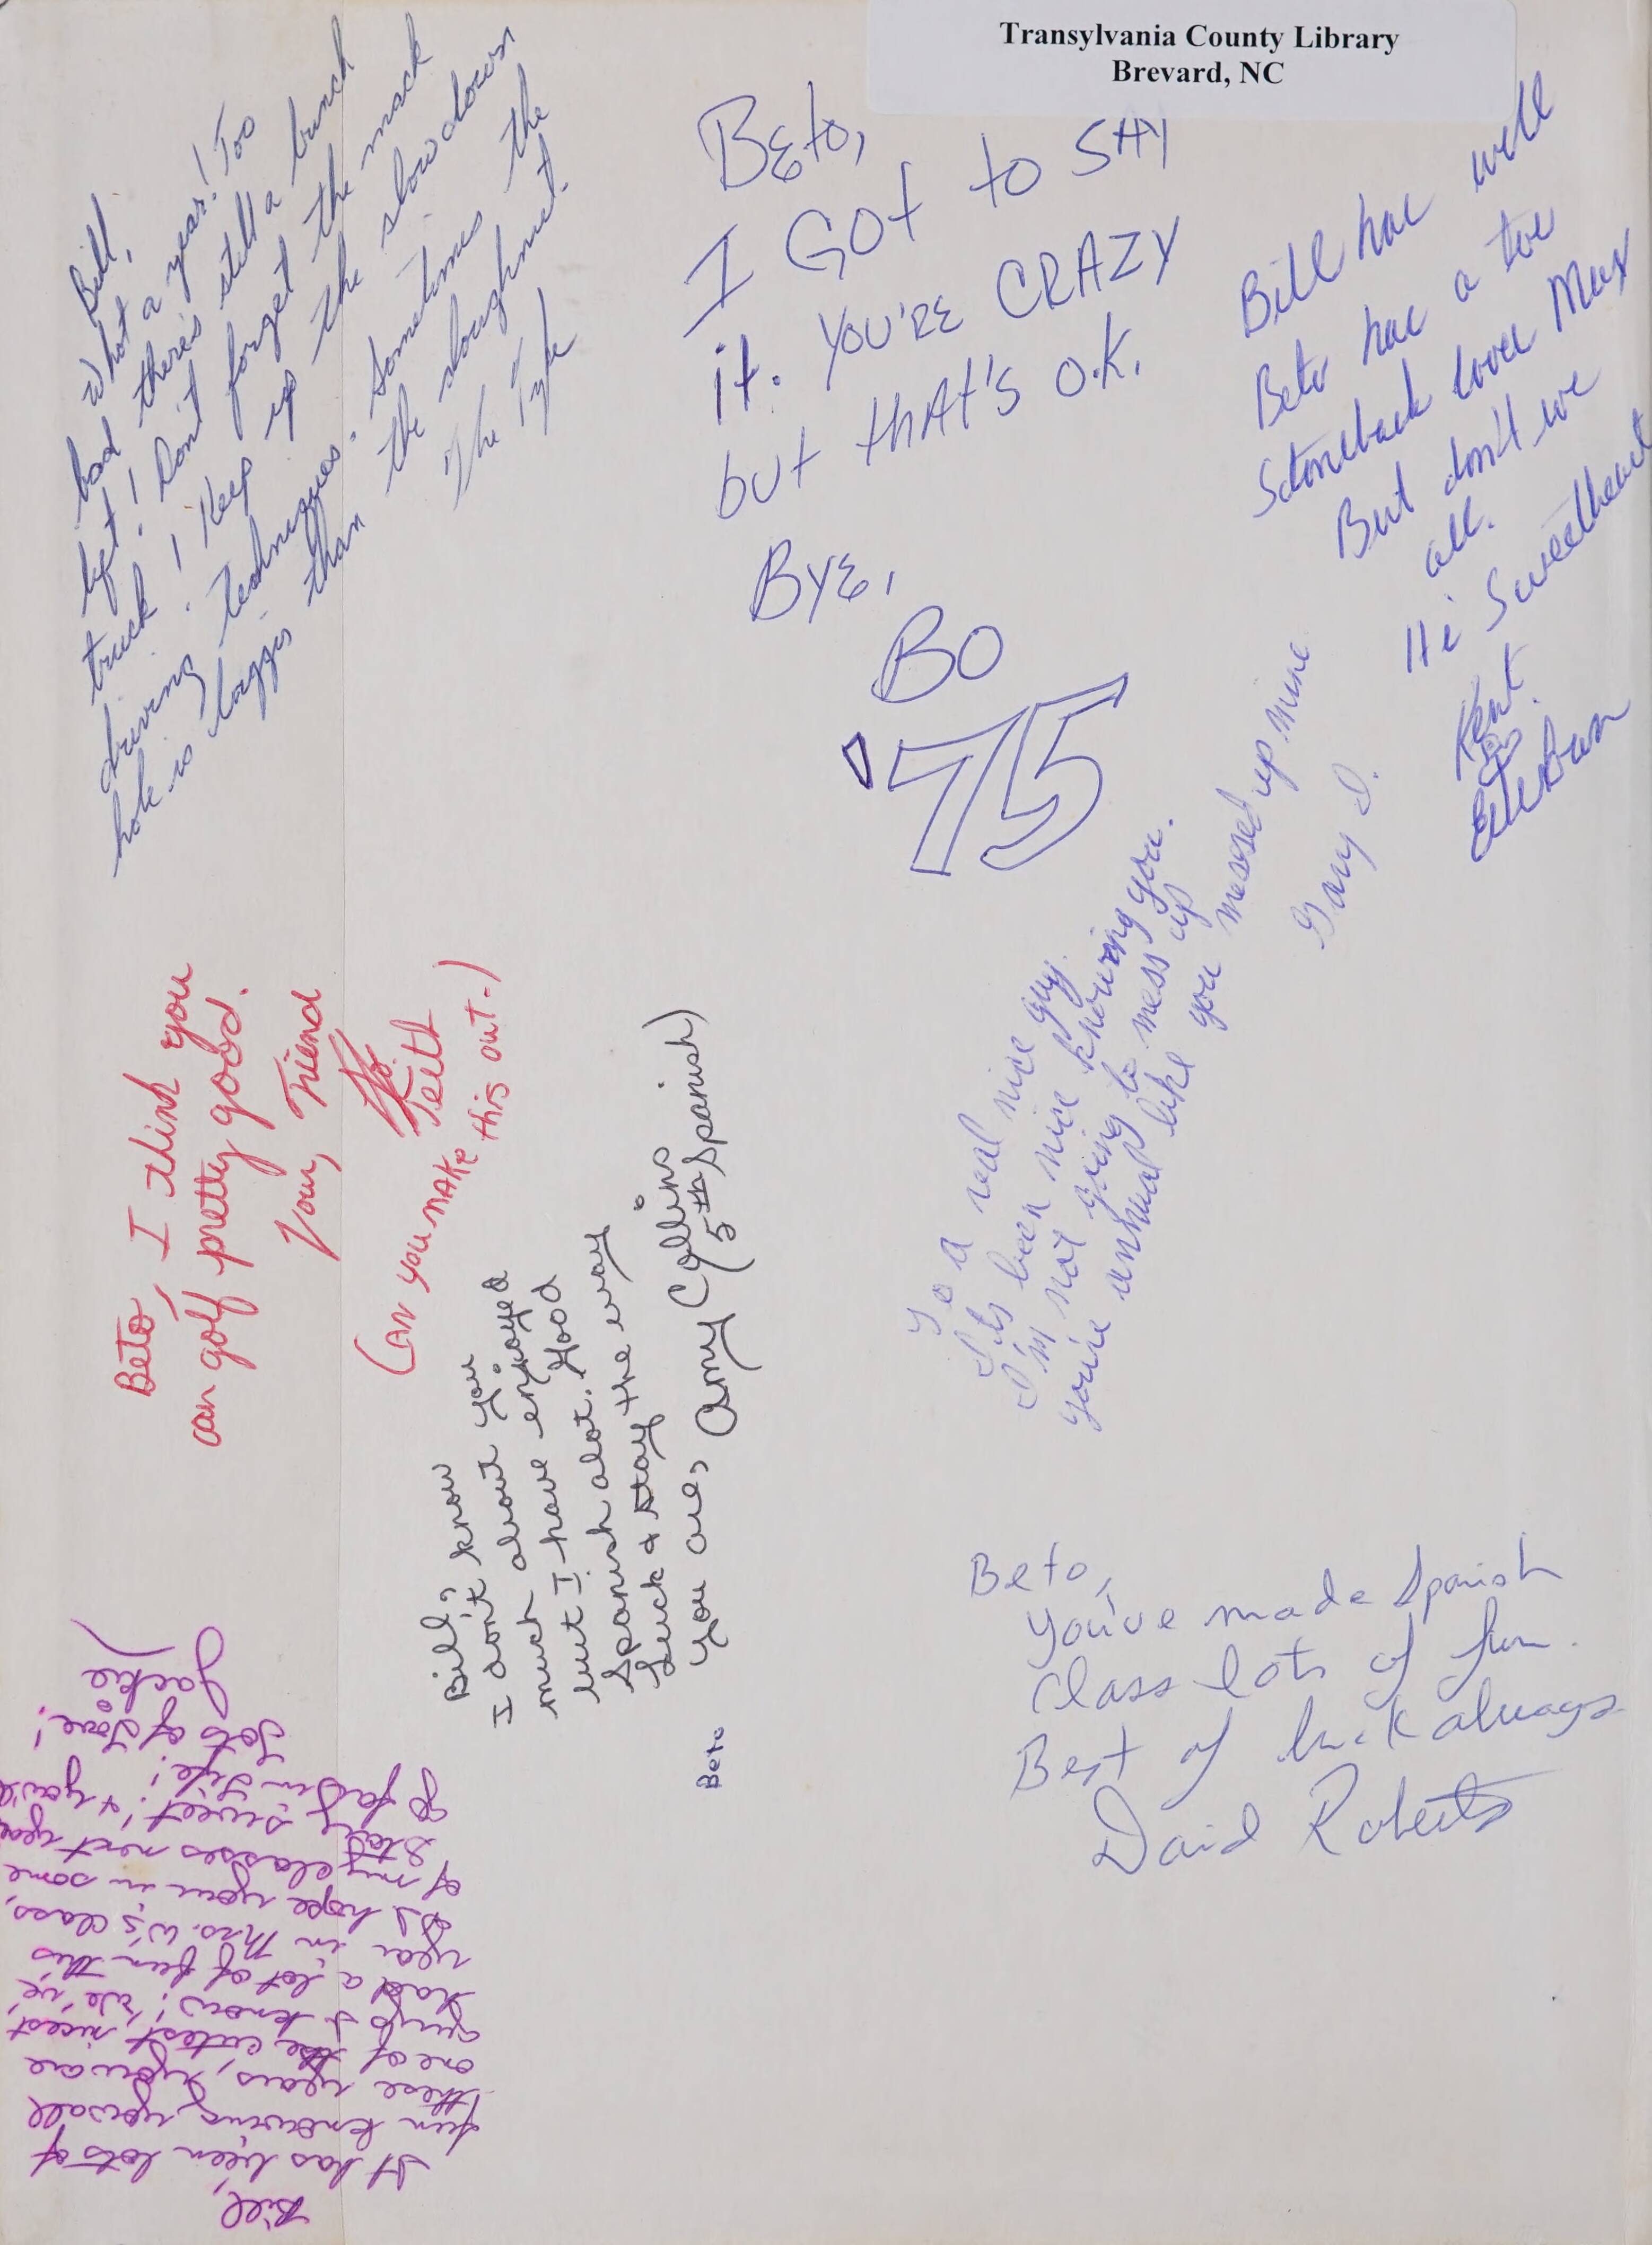 Transylvania County Library
Brevard, NC
Bill,
What a year! Too
bad there's still a bunch
left! Don't forget the mack
truck! Keep up the slow down
driving techniques. Sometimes the
hole is bigger than the doughnut.
The
Beto,
I GOt to SAY
it. YOU'RE CRAZY
but thAt's O.K.
BYE,
BO
'75
Bill hac well
Beto hac a toe
Stoneback lovee Max
But don't we
all.
Hi Sweetheart
Kent
Beto, I think you
can golf pretty good.
Your, Friend
(CAN YOU MAKE this out.)
Bill,
I don't know
much about you
but I have enjoyed
Spanish alot. Good
Luck & stay the way
you are, Amy Collins
5th Spanish)
Beto
a real nice guy.
Its been nice knowing you.
I'm not going to mess up
you're annual like you messed up mine
Gary D.
Beto,
You've made Spanish
Class lots of fun.
Best of luck always
David Roberts
Bill,
It has been lots of
fun knowing you all
these years, You are
one of the cutest, nicest
guys I know! We've
had a lot of fun this
year in Mrs. W's class,
I hope you in some
of my classes next year
Stay sweet! & you'll
go far in life!
Lots of Love!
Jackie